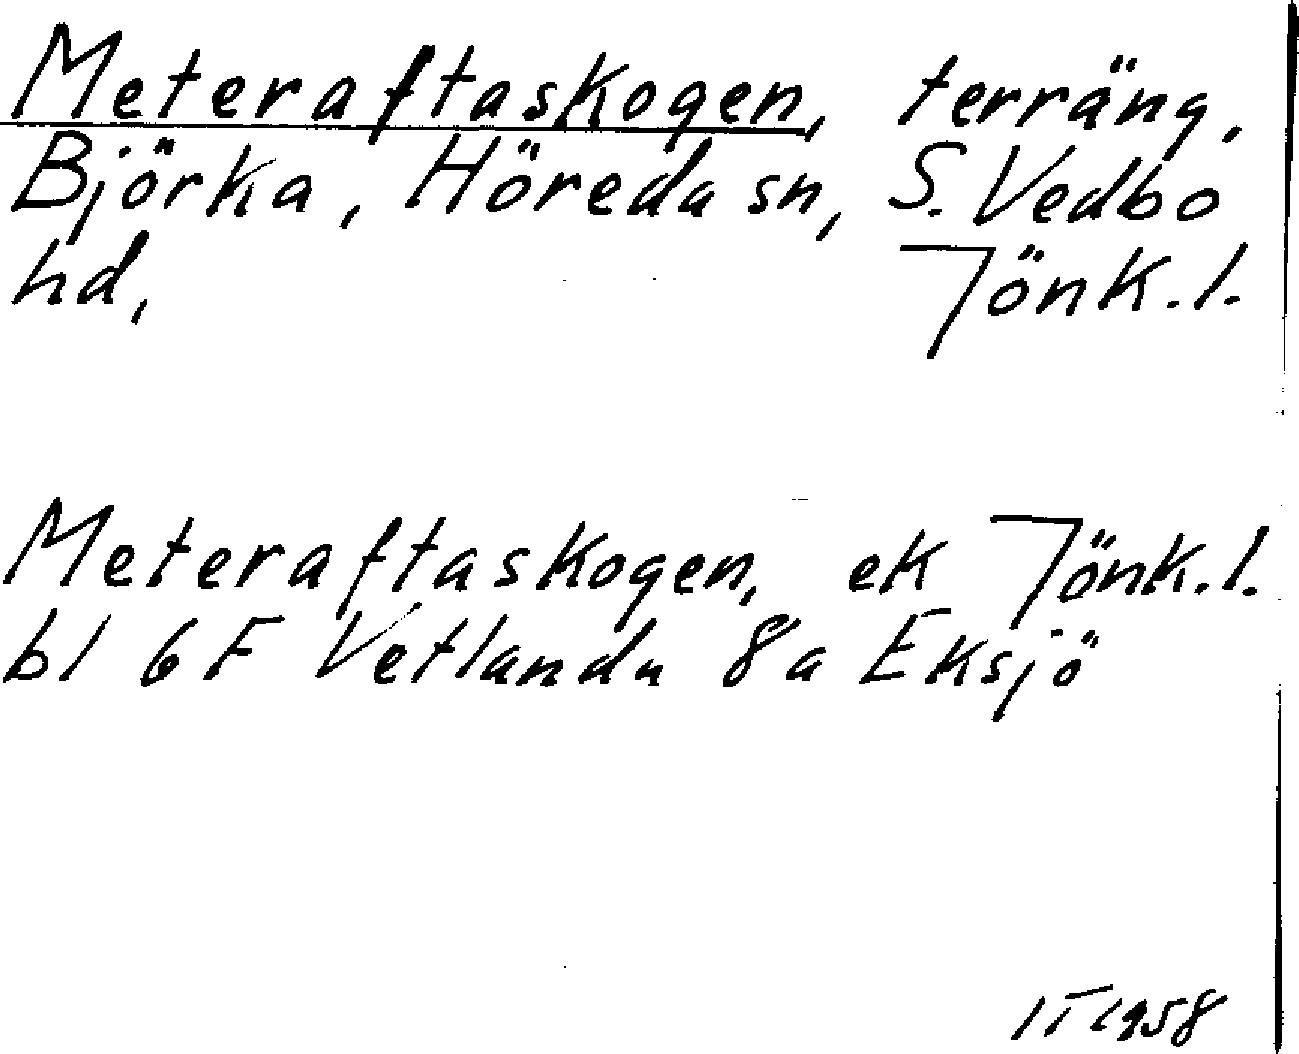 Meteraftaskogen, terräng,
Björka, Höreda sn, S. Vedbo
hd, Jönk. l.
Meteraftaskogen, ek Jönk. l.
bl 6 F Vetlanda 8a Eksjö
1958